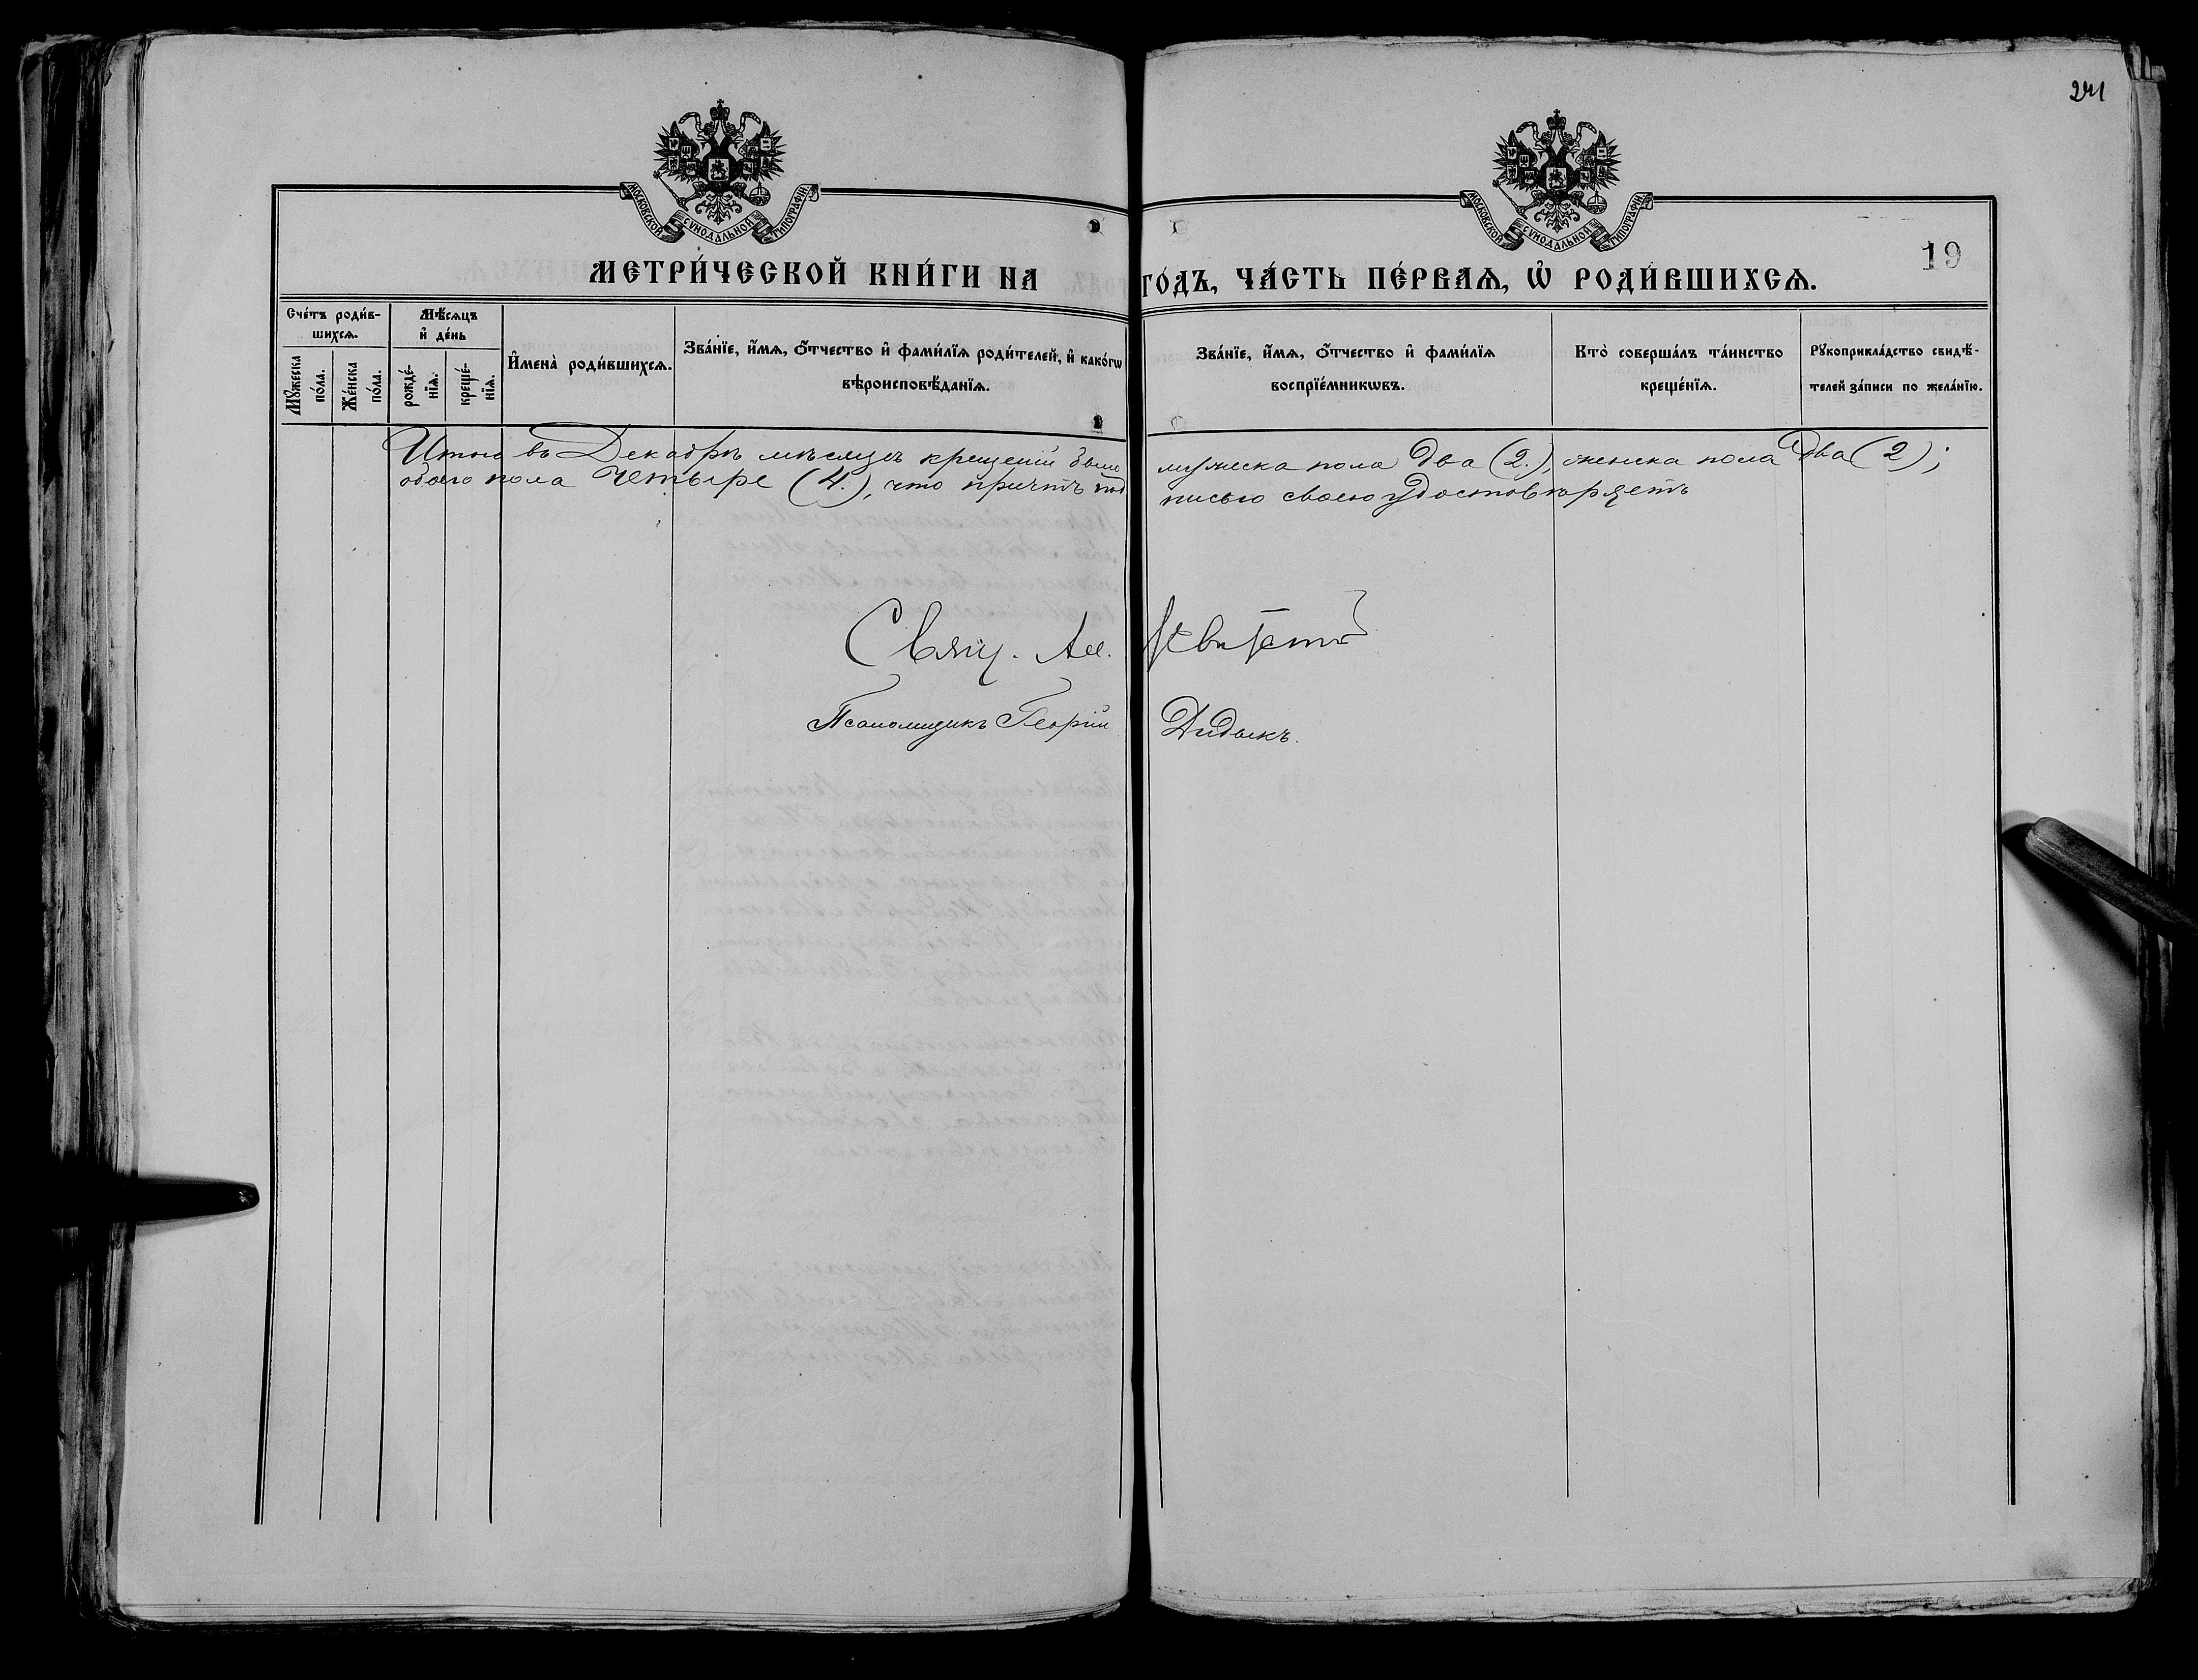 241
МОСКОВСКОЙ СѴНОДАЛЬНОЙ ТИПОГРАФІИ
МОСКОВСКОЙ СѴНОДАЛЬНОЙ ТИПОГРАФІИ
19
МЕТРИ́ЧЕСКОЙ КНИ́ГИ НА ГО́ДЪ, ЧА́СТЬ ПЕ́РВАѦ, Ѡ҆ РОДИ́ВШИХСѦ.
Сче́тъ роди́вшихсѧ.
Мꙋ́жеска по́ла.
Же́нска по́ла.
Мѣ́сѧцъ и҆ де́нь
рожде́нїѧ.
креще́нїѧ.
И҆мена̀ роди́вшихсѧ.
Зва́нїе, и҆́мѧ, ѻ҆́тчество и҆ фами́лїѧ роди́телей, и҆ како́гѡ
вѣроисповѣ́данїѧ.
Зва́нїе, и҆́мѧ, ѻ҆́тчество и҆ фами́лїѧ
воспрїе́мникѡвъ.
Кто̀ соверша́лъ та́инство
креще́нїѧ.
Рꙋкоприкла́дство свидѣ́-
телей за́писи по жела́нїю.
Итого въ Декабрѣ мѣсяцѣ крещеній было мужеска пола два (2.), женска пола два (2);
обоего пола четыре (4.), что причтъ подписью своею удостовѣряетъ
Свящ. Ал.
Псаломщикъ Георгій Дидыкъ.